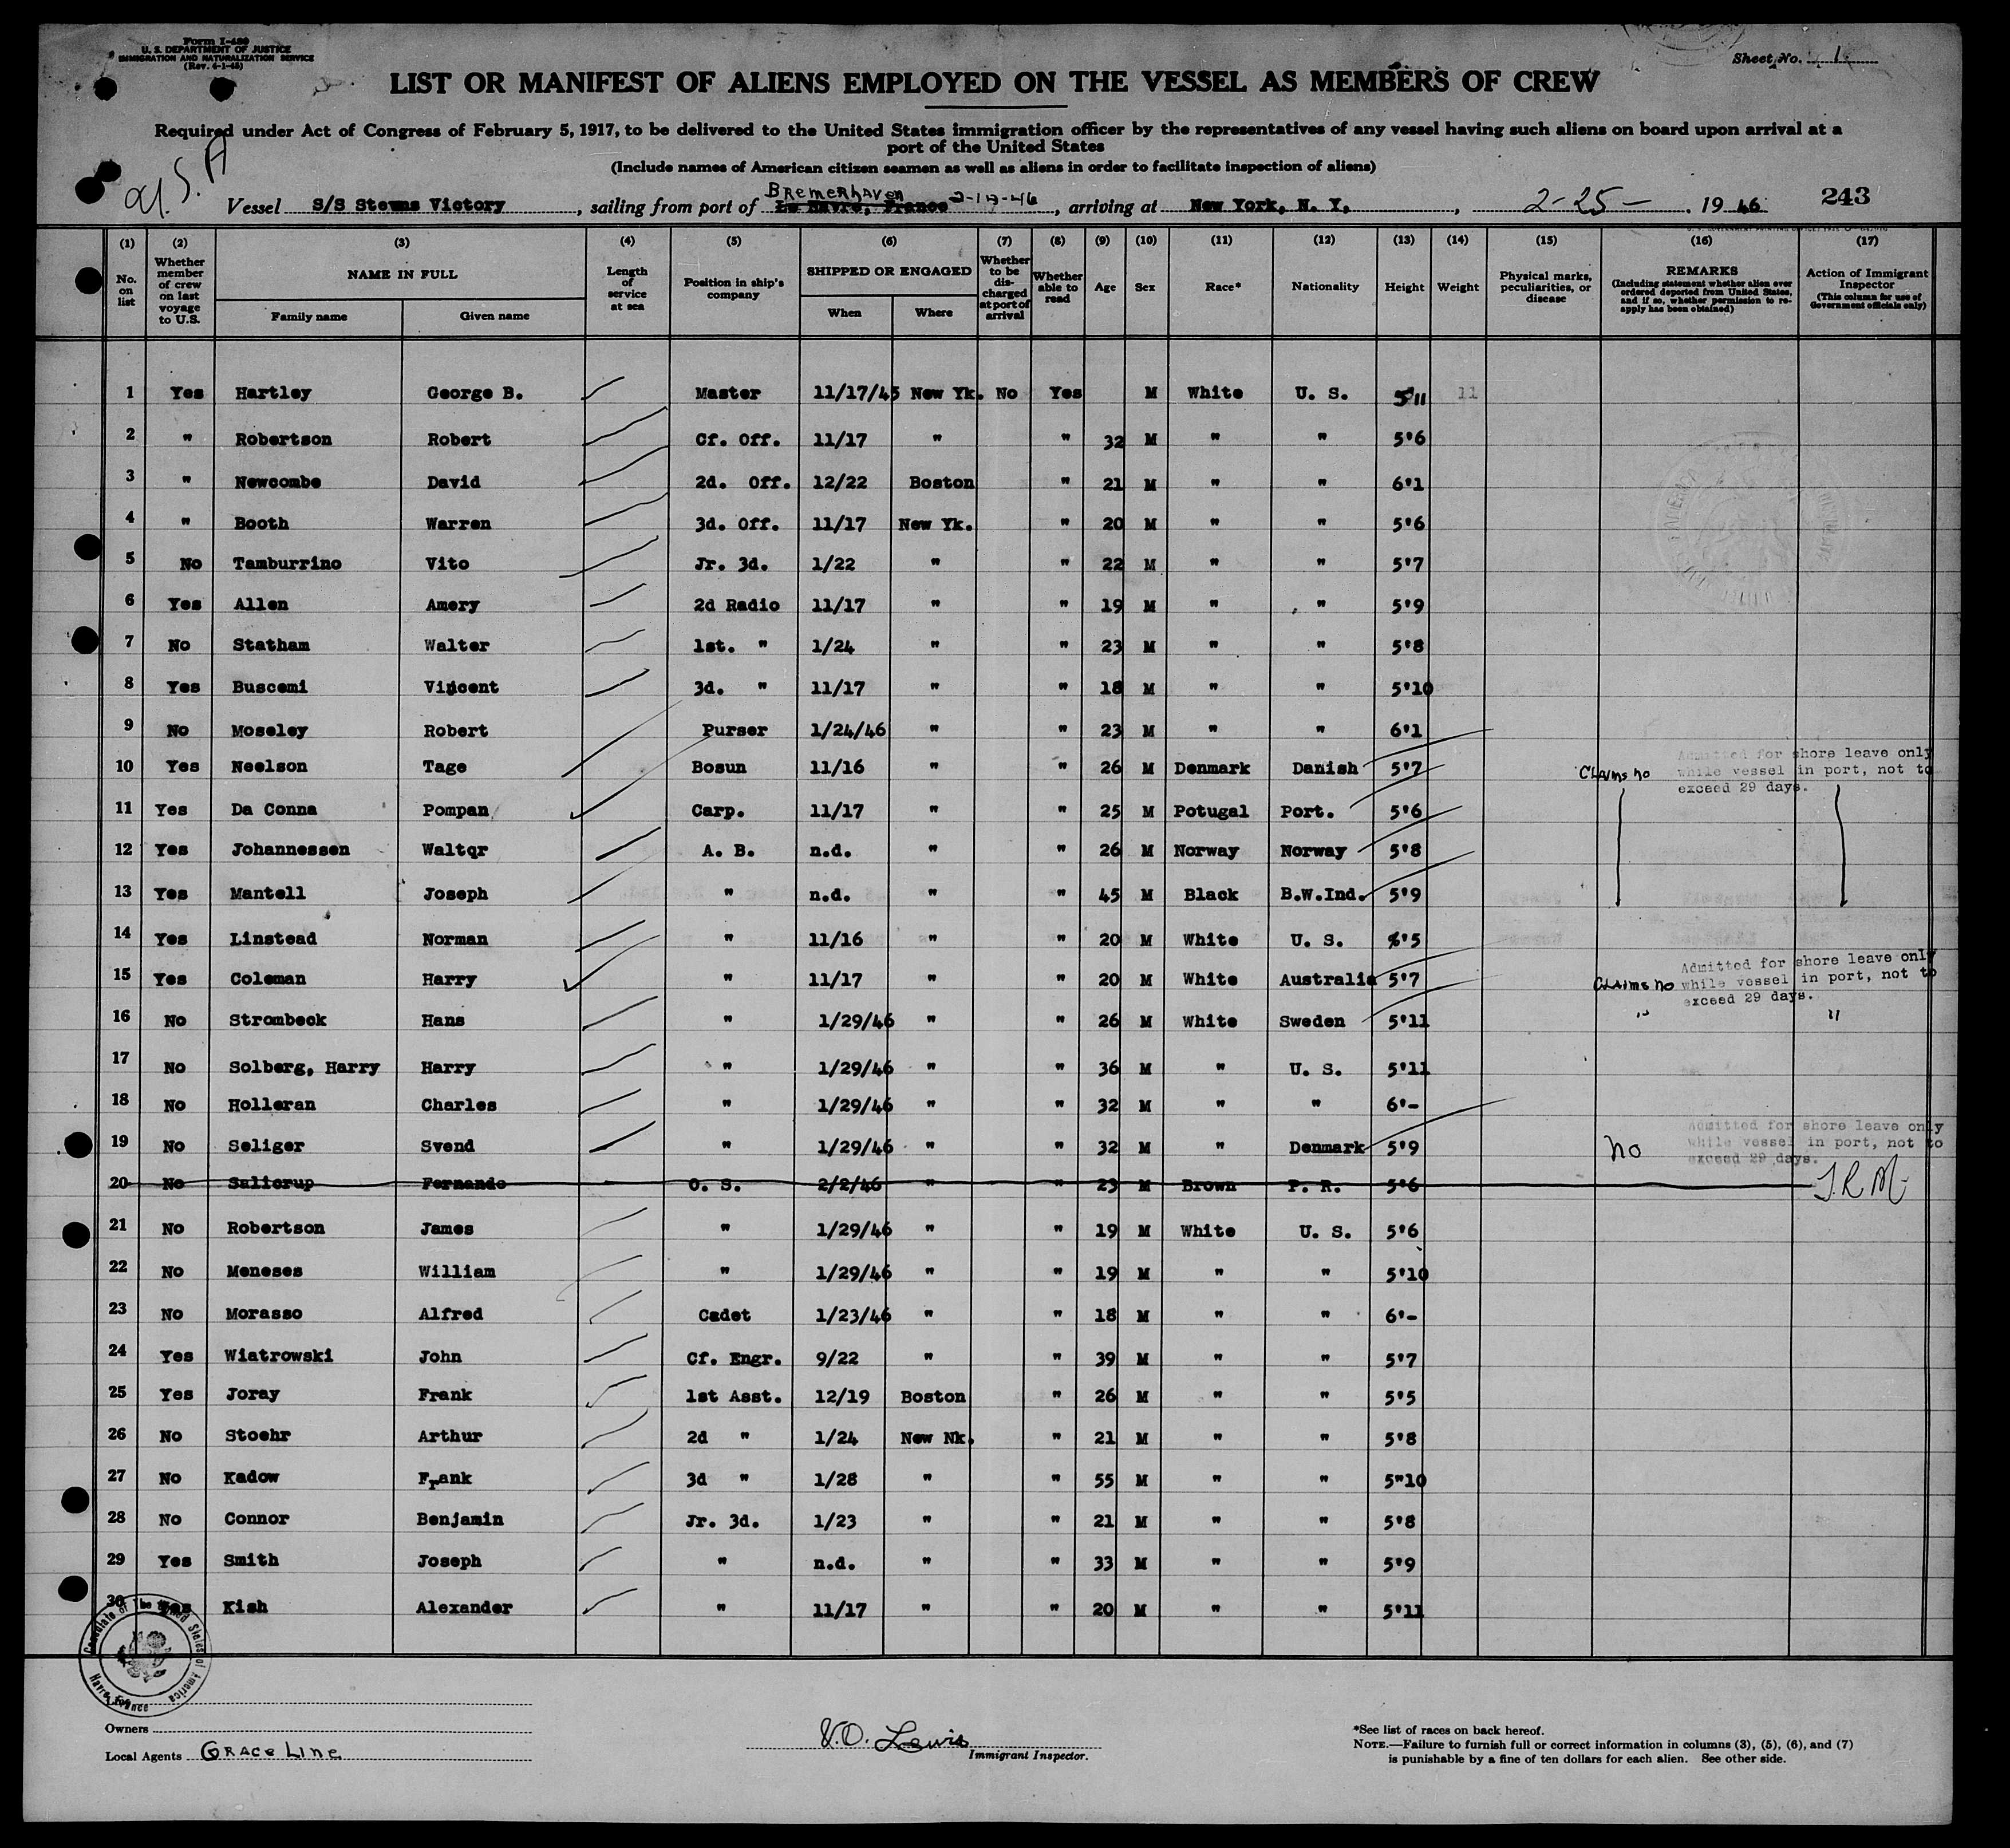 Form I-480
U. S. DEPARTMENT OF JUSTICE
IMMIGRATION AND NATURALIZATION SERVICE
(Rev. 4-1-45)
Sheet No. 1
LIST OR MANIFEST OF ALIENS EMPLOYED ON THE VESSEL AS MEMBERS OF CREW
Required under Act of Congress of February 5, 1917, to be delivered to the United States immigration officer by the representatives of any vessel having such aliens on board upon arrival at a
port of the United States
(Include names of American citizen seamen as well as aliens in order to facilitate inspection of aliens)
U.S.A
Bremerhaven 2-12-46
Vessel S/S Stevns Victory, sailing from port of Le Havre, France, arriving at New York, N. Y., 2-25- 1946 243
(1) (2) (3) (4) (5) (6) (7) (8) (9) (10) (11) (12) (13) (14) (15) (16) (17)
No. on list | Whether member of crew on last voyage to U.S. | NAME IN FULL | Family name | Given name | Length of service at sea | Position in ship's company | SHIPPED OR ENGAGED | When | Where | Whether to be discharged at port of arrival | Whether able to read | Age | Sex | Race* | Nationality | Height | Weight | Physical marks, peculiarities, or disease | REMARKS (Including statement whether alien ever ordered deported from United States, and if so, whether permission to re-apply has been obtained) | Action of Immigrant Inspector (This column for use of Government officials only)
1 Yes Hartley George B. Master 11/17/45 New Yk. No Yes M White U. S. 5'11 11
2 " Robertson Robert Cf. Off. 11/17 " " 32 M " " 5'6
3 " Newcombe David 2d. Off. 12/22 Boston " 21 M " " 6'1
4 " Booth Warren 3d. Off. 11/17 New Yk. " 20 M " " 5'6
5 No Tamburrino Vito Jr. 3d. 1/22 " " 22 M " " 5'7
6 Yes Allen Amery 2d Radio 11/17 " " 19 M " " 5'9
7 No Statham Walter 1st. " 1/24 " " 23 M " " 5'8
8 Yes Buscemi Vincent 3d. " 11/17 " " 18 M " " 5'10
9 No Moseley Robert Purser 1/24/46 " " 23 M " " 6'1
10 Yes Neelson Tage Bosun 11/16 " " 26 M Denmark Danish 5'7 Claims no Admitted for shore leave only while vessel in port, not to exceed 29 days.
11 Yes Da Conna Pompan Carp. 11/17 " " 25 M Potugal Port. 5'6
12 Yes Johannessen Waltqr A. B. n.d. " " 26 M Norway Norway 5'8
13 Yes Mantell Joseph " n.d. " " 45 M Black B.W.Ind. 5'9
14 Yes Linstead Norman " 11/16 " " 20 M White U. S. 6'5
15 Yes Coleman Harry " 11/17 " " 20 M White Australia 5'7 Claims no Admitted for shore leave only while vessel in port, not to exceed 29 days.
16 No Strombeck Hans " 1/29/46 " " 26 M White Sweden 5'11 " "
17 No Solberg, Harry Harry " 1/29/46 " " 36 M " U. S. 5'11
18 No Holleran Charles " 1/29/46 " " 32 M " " 6'-
19 No Seliger Svend " 1/29/46 " " 32 M " Denmark 5'9 no Admitted for shore leave only while vessel in port, not to exceed 29 days.
20 No Salicrup Fernando O. S. 2/2/46 " " 23 M Brown P. R. 5'6 J.R.M
21 No Robertson James " 1/29/46 " " 19 M White U. S. 5'6
22 No Meneses William " 1/29/46 " " 19 M " " 5'10
23 No Morasso Alfred Cadet 1/23/46 " " 18 M " " 6'-
24 Yes Wiatrowski John Cf. Engr. 9/22 " " 39 M " " 5'7
25 Yes Joray Frank 1st Asst. 12/19 Boston " 26 M " " 5'5
26 No Stoehr Arthur 2d " 1/24 New Nk. " 21 M " " 5'8
27 No Kadow Frank 3d " 1/28 " " 55 M " " 5"10
28 No Connor Benjamin Jr. 3d. 1/23 " " 21 M " " 5'8
29 Yes Smith Joseph " n.d. " " 33 M " " 5'9
30 Yes Kish Alexander " 11/17 " " 20 M " " 5'11
Consulate of The United States of America
Havre, France
Owners
Local Agents Grace Line
V.O. Lewis
Immigrant Inspector.
*See list of races on back hereof.
NOTE.—Failure to furnish full or correct information in columns (3), (5), (6), and (7)
is punishable by a fine of ten dollars for each alien. See other side.